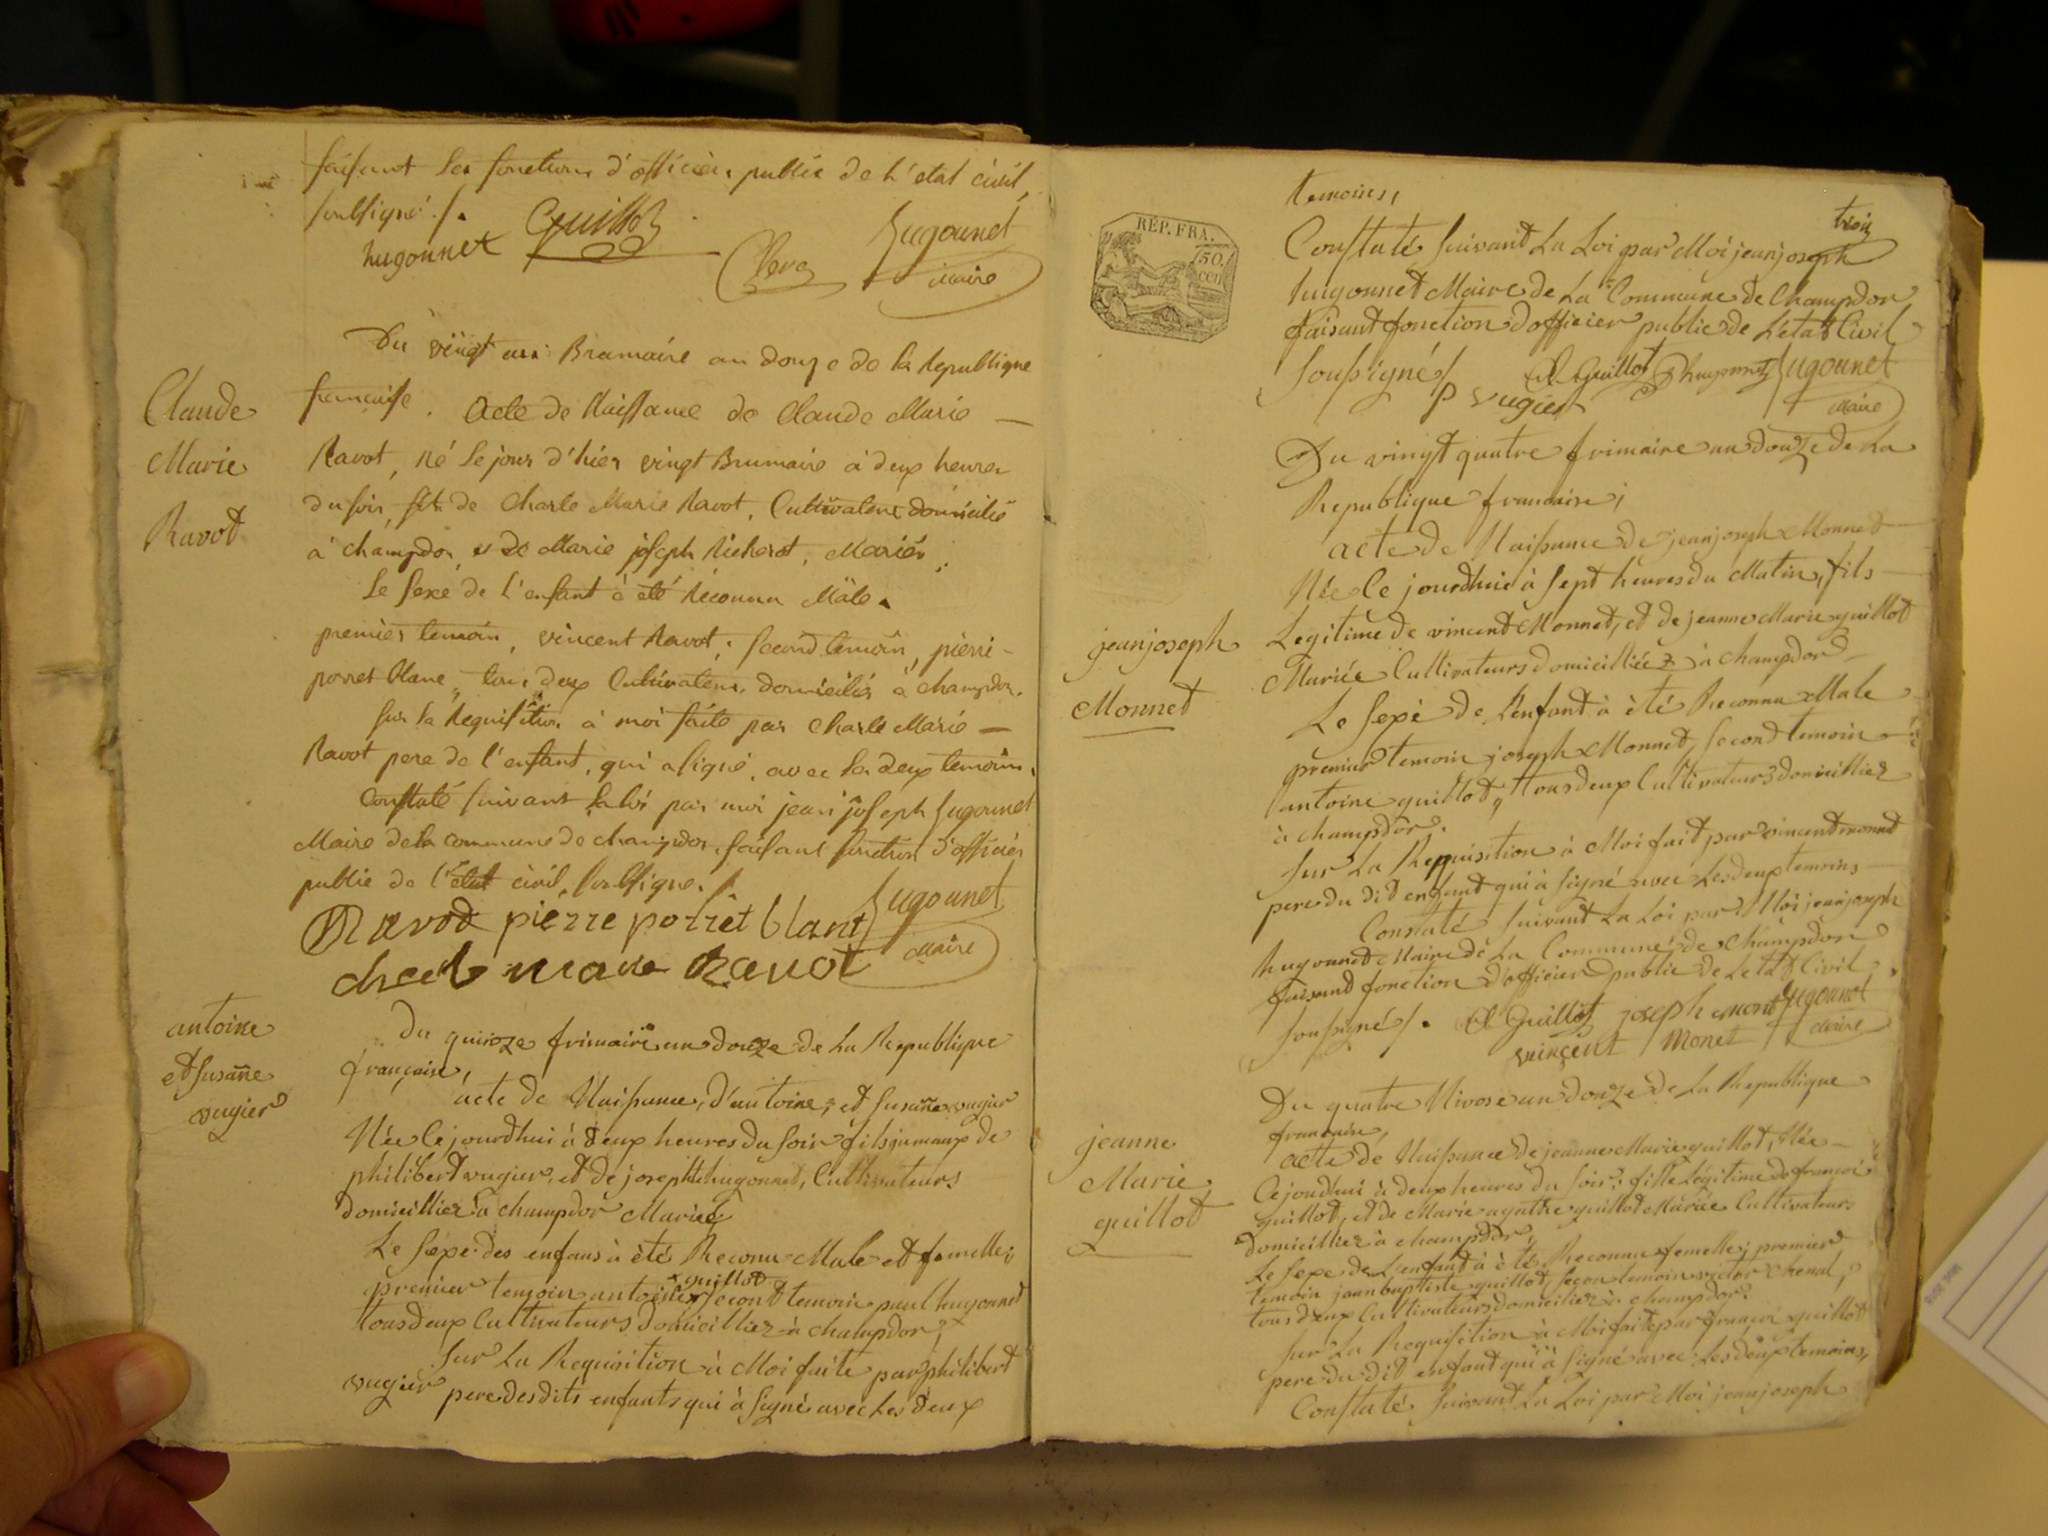 faisant les fonctions d'officier public de l'état civil,
soussigné./.
hugonnet Guillot Clerc hugonnet
maire
Du vingt un Brumaire an douze de la Republique
française. Acte de Naissance de Claude Marie —
Claude
Marie
Ravot
Ravot, né le jour d'hier vingt Brumaire à deux heures
du soir, fils de Charle Marie Ravot, Cultivateur domicilié
à champdor, et de Marie joseph Richerot, Mariés.
Le sexe de l'enfant à été Réconnu Mâle.
premier temoin, vincent Ravot; second temoin, pierre
porret blanc, tous deux Cultivateurs domiciliés à champdor.
Sur la Requisition à moi faite par Charle Marie —
Ravot pere de l'enfant, qui a signé, avec les deux temoins.
Constaté suivant la loi par moi jean joseph hugonnet
Maire de la commune de champdor, faisant fonction d'officier
public de l'état civil, soussigné./.
Ravot piérre porrèt blanc hugonnet
maire
charle marie Ravot
antoine
et susanne
vugier
Du quinze frimaire an douze de La Republique
française,
acte de Naissance, d'antoine, et susanne vugier
Née Cejourdhui à deux heures du Soir fils jumeaux de
philibert vugier, et de josephte hugonnet, Cultivateurs
domicilliez à Champdor Mariéz
Le Sexe des enfans à èté Reconu Male et femelle;
premier temoin antoine guillot second temoin paul hugonnet
tous deux Cultivateurs domicilliez à champdor;
Sur La Requisition à Moi faite par philibert
vugier pere des dits enfants qui à signé avec Les deux
temoins,
trois
RÉP. FRA.
50.
cen
Constaté suivant La Loi par Moi jean joseph
hugonnet Maire de La Commune de Champdor
faisant fonction d'officier public de Letat Civil
Soussigné/
A Guillot P hugonnet hugonnet
p vugier maire
Du vingt quatre frimaire an douze de La
Republique francaise;
acte de Naissance de jean joseph Monnet
Née Ce jourdhui à Sept heures du Matin, fils
jean joseph
Monnet
Legitime de vincent Monnet, et de jeanne Marie guillot
Mariée Cultivateurs domicilliéz à Champdor
Le Sexe de Lenfant à èté Reconnu Male
premier temoin joseph Monnet, second temoin
antoine guillot, tous deux Cultivateurs domicilliez
à champdor.
Sur La Requisition à Moi fait par vincent monnet
pere du dit enfant qui à signé avec Les deux temoins
Constaté suivant La Loi par Moi jean joseph
hugonnet Maire de La Commune de Champdor
faisant fonction d'officier public de Letat Civil
Soussigné/. A Guillot joseph monet hugonnet
vincent monet maire
Du quatre Nivose an douze de La Republique
francaise,
jeanne
Marie
guillot
acte de Naissance de jeanne Marie guillot, Née
Cejourdhui à deux heures du Soir; fille Légitime de françoi
guillot, et de Marie agathe guillot Mariée Cultivateurs
domicilliez à champdor;
Le Sexe de Lenfant à èté Reconnu femelle; premier
temoin jean baptiste guillot, Secon temoin victor
tous deux Cultivateurs domiciliez à champdor.
Sur La Requisition à Moi faite par françoi guillot
pere du dit enfant qui à signé avec Les deux temoins,
Constaté suivant La Loi par Moi jean joseph